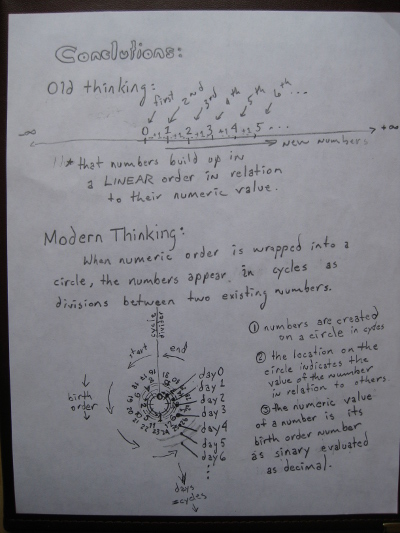 Conclutions:
Old thinking:
first 2nd 3rd 4th 5th 6th ...
-∞ 0 +1 1 +1 2 +1 3 +1 4 +1 5 ... +∞
new numbers
* that numbers build up in
a LINEAR order in relation
to their numeric value.
Modern Thinking:
When numeric order is wrapped into a
circle, the numbers appear in cycles as
divisions between two existing numbers.
cycle divider
start
end
birth
order
day 0
day 1
day 2
day 3
day 4
day 5
day 6
days
=cycles
① numbers are created
on a circle in cycles
② the location on the
circle indicates the
value of the number
in relation to others
③ the numeric value
of a number is its
birth order number
as sinary evaluated
as decimal.